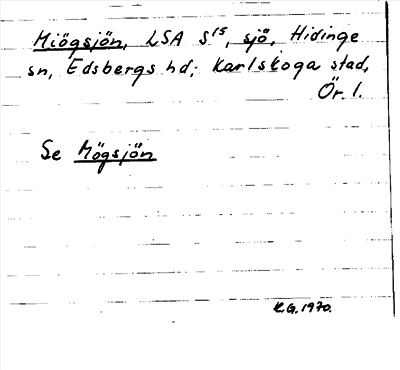 Miögsjön, LSA S15, sjö, Hidinge
sn, Edsbergs hd; Karlskoga stad,
Ör. l.
Se Mögsjön
K.G. 1970.